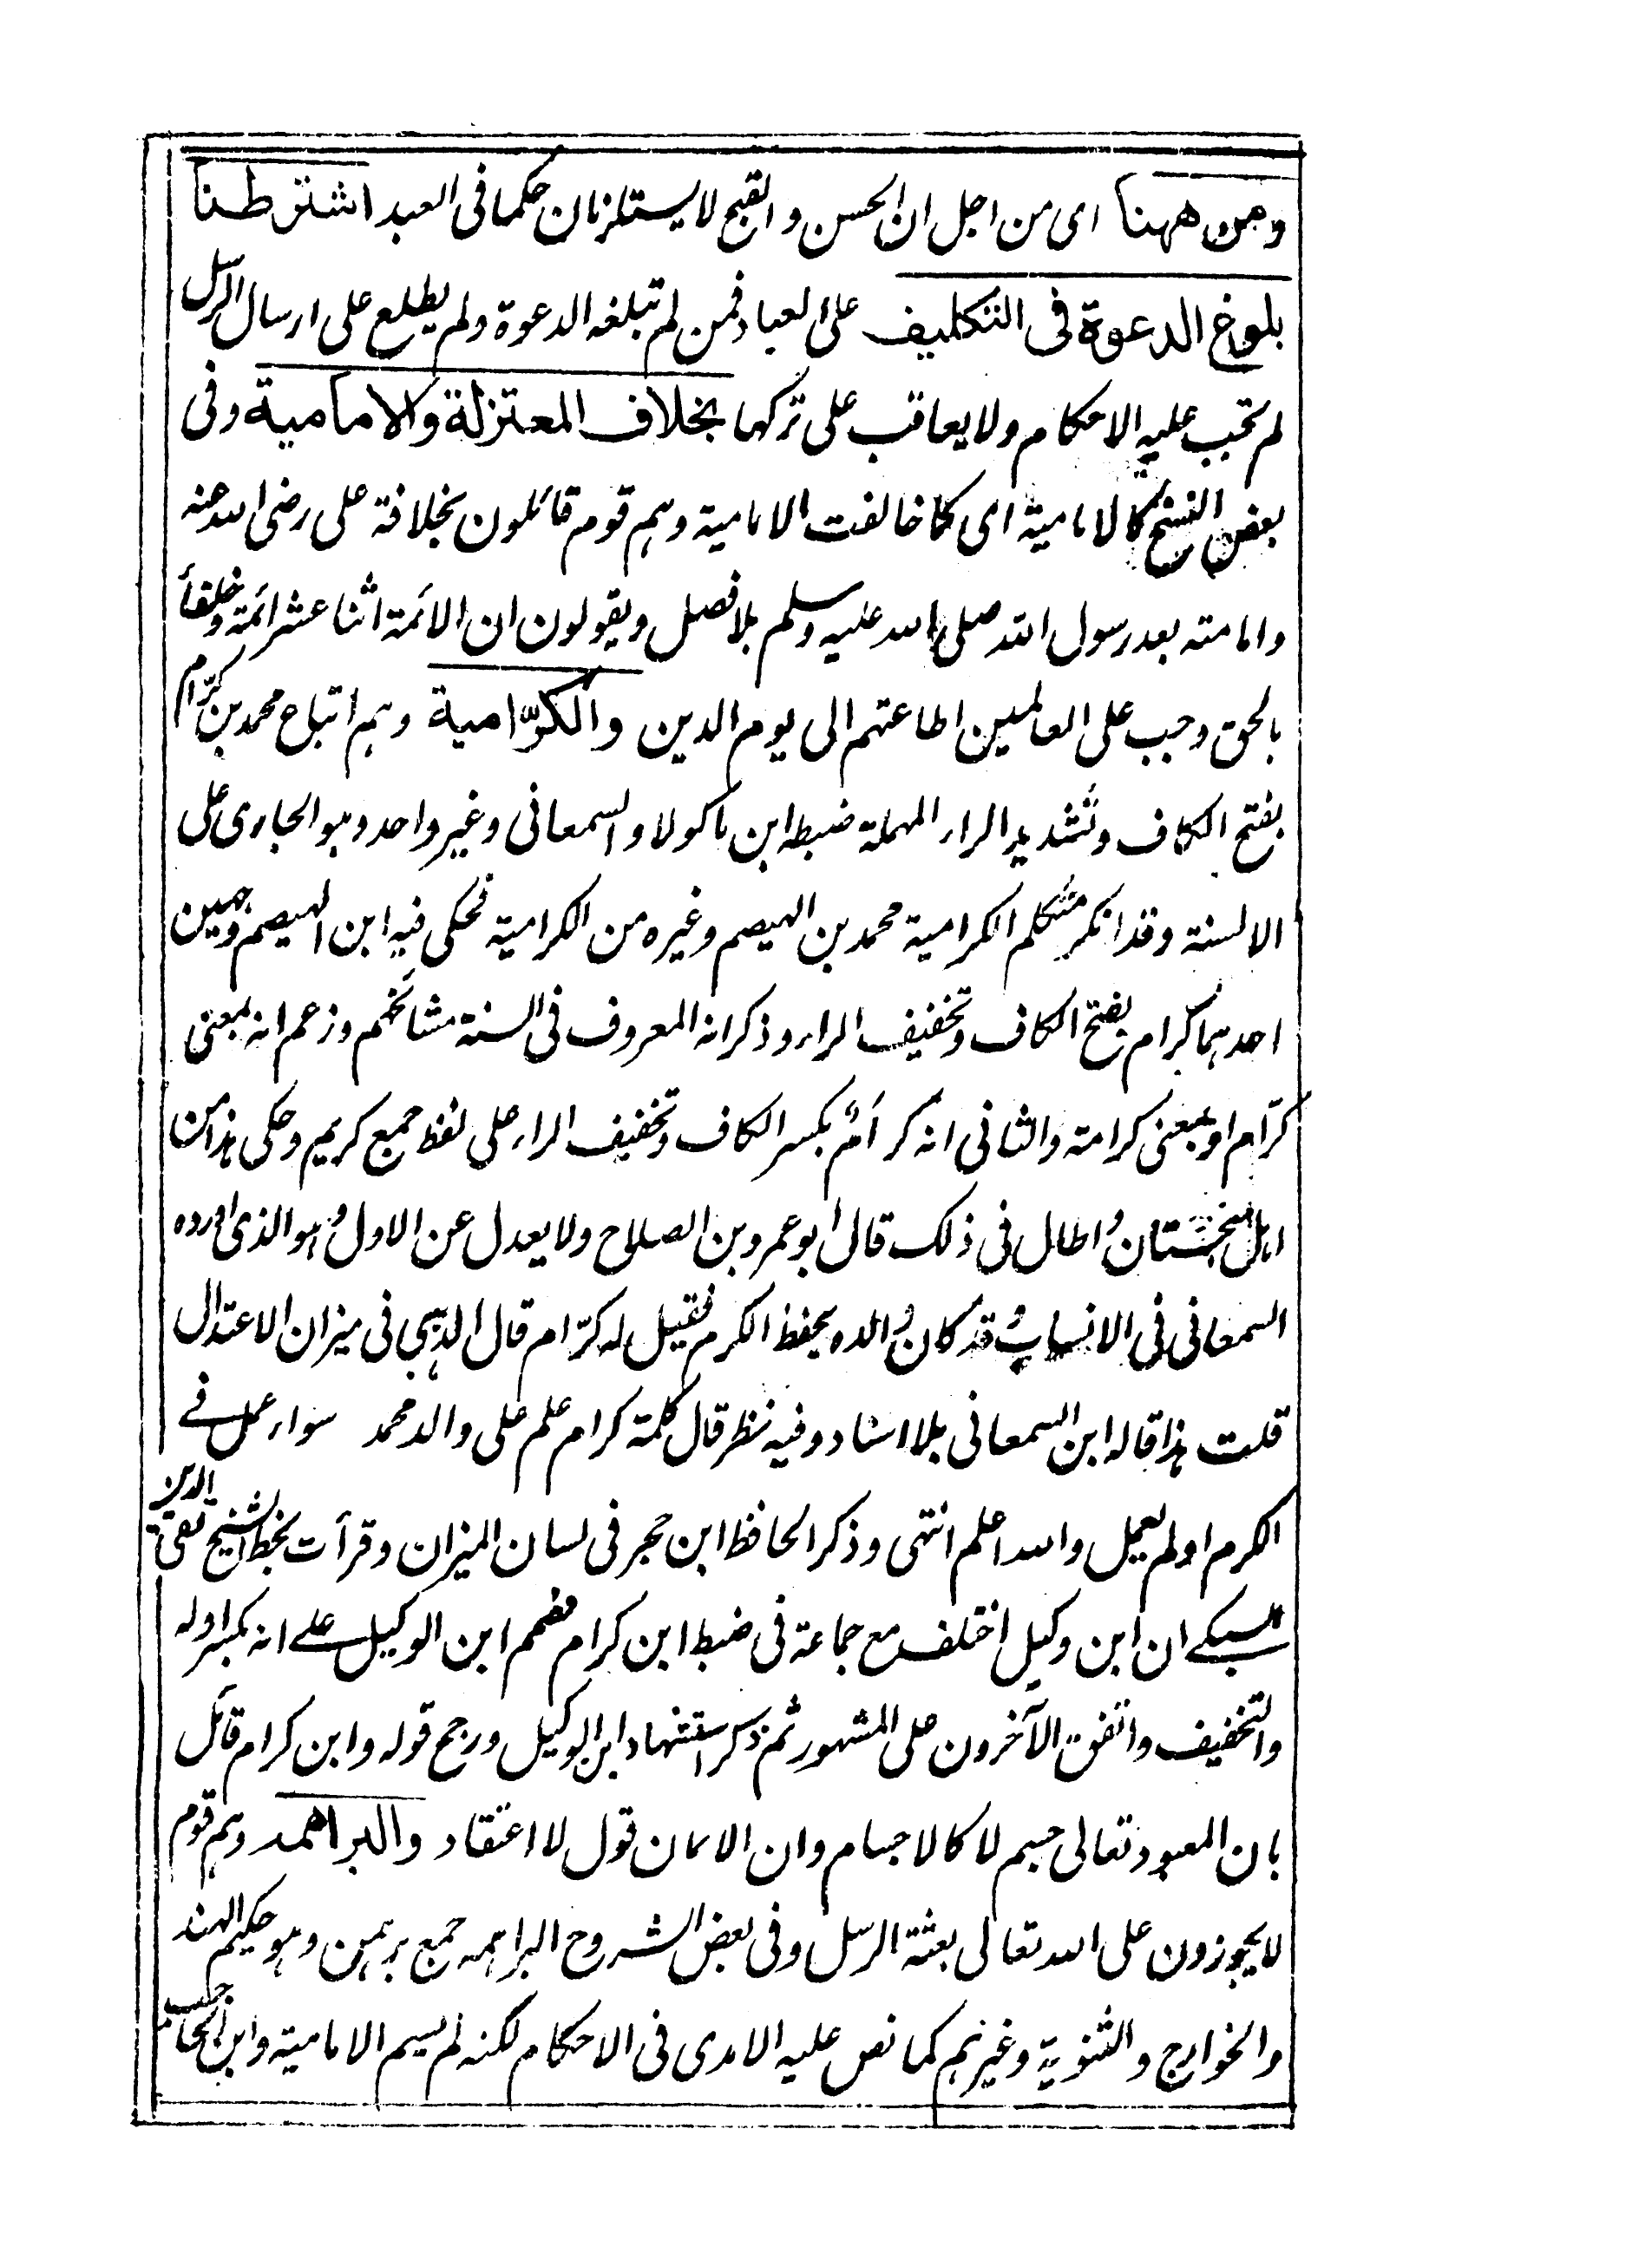 ومن ههنا اى من اجل ان الحسن والقبح لا يستلزمان حكما فى العبد اشترطنا
بلوغ الدعوة فى التكليف على العباد فمن لم تبلغه الدعوة ولم يطلع على ارسال الرسل
لم تجب عليه الاحكام ولا يعاقب على تركها بخلاف المعتزلة والامامية وفى
بعض النسخ كالامامية اى كما خالفت الامامية وهم قوم قائلون بخلافة على رضى الله عنه
وامامته بعد رسول الله صلى الله عليه وسلم بلا فصل ويقولون ان الائمة اثنا عشر ائمة وخلفاء
بالحق وجب على العالمين اطاعتهم الى يوم الدين والكرّامية وهم اتباع محمد بن كرّام
بفتح الكاف وتشديد الراء المهملة ضبطه ابن ماكولا والسمعانى وغير واحد وهو الجارى على
الالسنة وقد انكر متكلم الكرامية محمد بن الهيصم وغيره من الكرامية فحكى فيه ابن الهيصم وجهين
احدهما كرام بفتح الكاف وتخفيف الراء وذكر انه المعروف فى السنة مشائخهم وزعم انه بمعنى
كرّام او بمعنى كرامته والثانى انه كرام بكسر الكاف وتخفيف الراء على لفظ جمع كريم وحكى هذا من
اهل سجستان واطال فى ذلك قال ابو عمرو بن الصلاح ولا يعدل عن الاول وهو الذى اورده
السمعانى فى الانساب وقد كان والده يحفظ الكرم فقيل له كرّام قال الذهبى فى ميزان الاعتدال
قلت هذا قاله ابن السمعانى بلا اسناد وفيه نظر قال كلمة كرام علم على والد محمد سواء عمل فے
الكرم او لم يعمل والله اعلم انتهى وذكر الحافظ ابن حجر فى لسان الميزان وقرأت بخط الشيخ تقى الدين
السبكے ان ابن وكيل اختلف مع جماعة فى ضبط ابن كرام فصمم ابن الوكيل علے انه بكسر اوله
والتخفيف واتفق الآخرون على المشهور ثم ذكر استشهاد ابن الوكيل ورجح قوله وابن كرام قائل
بان المعبود تعالى جسم لا كالاجسام وان الايمان قول لا اعتقاد والبراهمه وهم قوم
لا يجوزون على الله تعالى بعثة الرسل وفى بعض الشروح البراهمه جمع برهمن وهو حكيم الهند
والخوارج والثنوية وغيرهم كما نص عليه الامدى فى الاحكام لكنه لم يسم الامامية وابن الحاجب